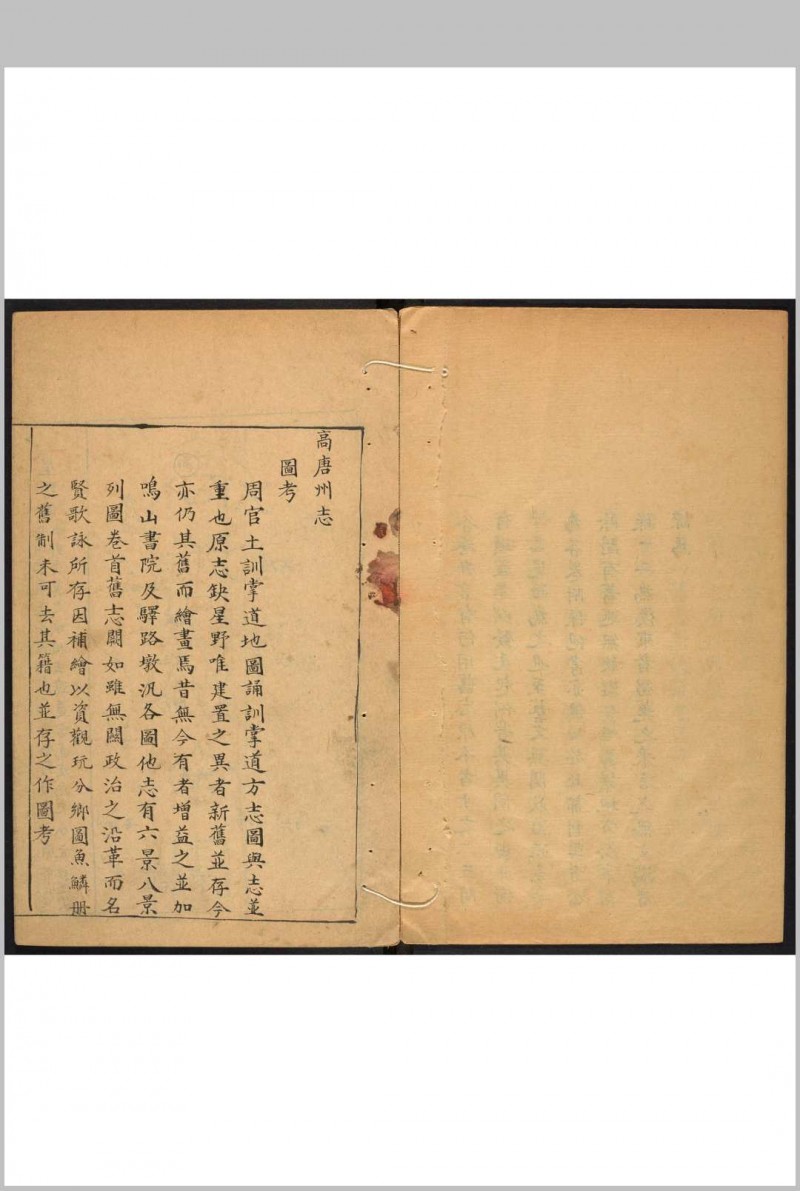 高唐州志
圖考
周官土訓掌道地圖誦訓掌道方志圖與志並
重也原志缺星野唯建置之異者新舊並存今
亦仍其舊而繪畫焉昔無今有者增益之並加
鳴山書院及驛路墩汛各圖他志有六景八景
列圖卷首舊志闕如雖無關政治之沿革而名
賢歌詠所存因補繪以資觀玩分鄉圖魚鱗册
之舊制未可去其籍也並存之作圖考